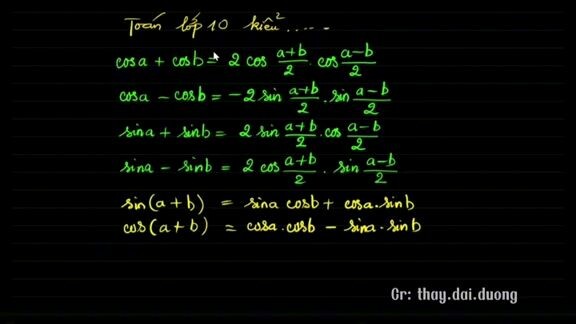 Toán lớp 10 kiểu² .....
cosa + cosb = 2 cos \frac{a+b}{2} . cos \frac{a-b}{2}
cosa - cosb = -2 sin \frac{a+b}{2} . sin \frac{a-b}{2}
sina + sinb = 2 sin \frac{a+b}{2} . cos \frac{a-b}{2}
sina - sinb = 2 cos \frac{a+b}{2} . sin \frac{a-b}{2}
sin(a+b) = sina cosb + cosa.sinb
cos(a+b) = cosa.cosb - sina.sinb
Cr: thay.dai.duong